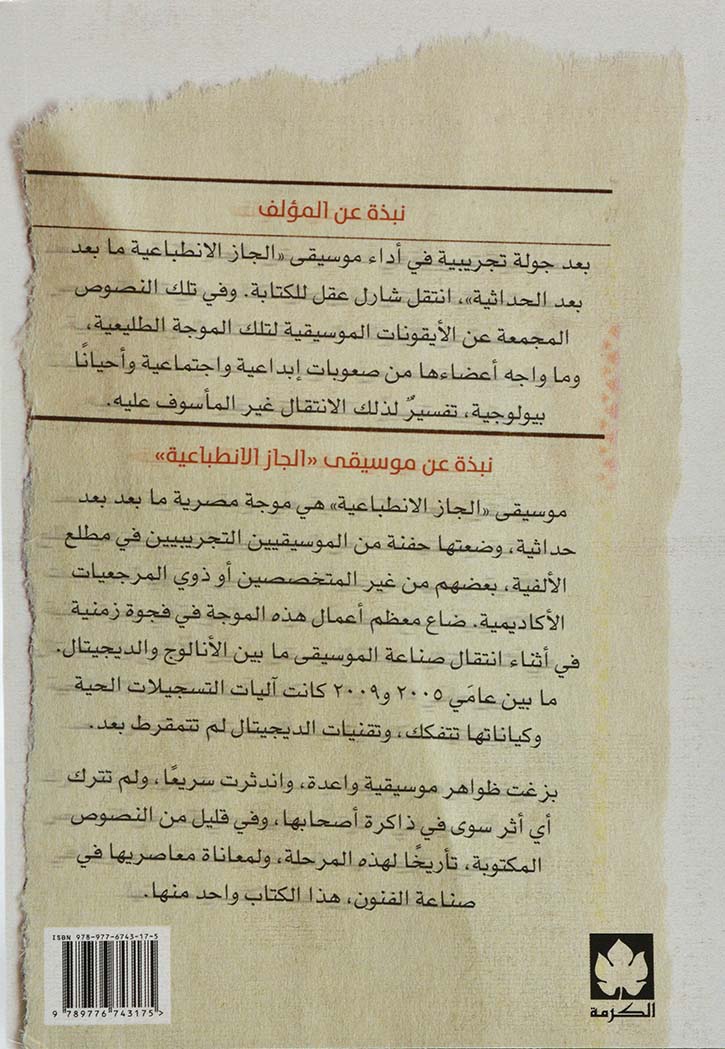 نبذة عن المؤلف
بعد جولة تجريبية في أداء موسيقى «الجاز الانطباعية ما بعد
بعد الحداثية»، انتقل شارل عقل للكتابة. وفي تلك النصوص
المجمعة عن الأيقونات الموسيقية لتلك الموجة الطليعية،
وما واجه أعضاءها من صعوبات إبداعية واجتماعية وأحيانًا
بيولوجية، تفسيرٌ لذلك الانتقال غير المأسوف عليه.
نبذة عن موسيقى «الجاز الانطباعية»
موسيقى «الجاز الانطباعية» هي موجة مصرية ما بعد بعد
حداثية، وضعتها حفنة من الموسيقيين التجريبيين في مطلع
الألفية، بعضهم من غير المتخصصين أو ذوي المرجعيات
الأكاديمية. ضاع معظم أعمال هذه الموجة في فجوة زمنية
في أثناء انتقال صناعة الموسيقى ما بين الأنالوج والديجيتال.
ما بين عامَي ٢٠٠٥ و٢٠٠٩ كانت آليات التسجيلات الحية
وكياناتها تتفكك، وتقنيات الديجيتال لم تتمقرط بعد.
بزغت ظواهر موسيقية واعدة، واندثرت سريعًا، ولم تترك
أي أثر سوى في ذاكرة أصحابها، وفي قليل من النصوص
المكتوبة، تأريخًا لهذه المرحلة، ولمعاناة معاصريها في
صناعة الفنون، هذا الكتاب واحد منها.
ISBN 978-977-6743-17-5
9 789776 743175>
الكرمة